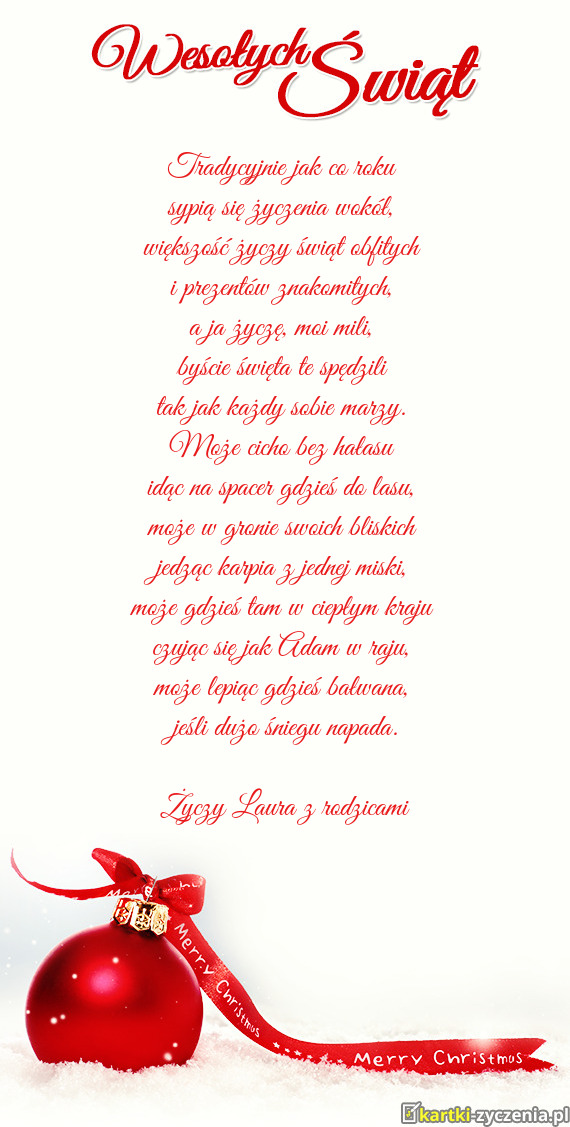 Wesołych Świąt
Tradycyjnie jak co roku
sypią się życzenia wokół,
większość życzy świąt obfitych
i prezentów znakomitych,
a ja życzę, moi mili,
byście święta te spędzili
tak jak każdy sobie marzy.
Może cicho bez hałasu
idąc na spacer gdzieś do lasu,
może w gronie swoich bliskich
jedząc karpia z jednej miski,
może gdzieś tam w ciepłym kraju
czując się jak Adam w raju,
może lepiąc gdzieś bałwana,
jeśli dużo śniegu napada.
Życzy Laura z rodzicami
Merry Chri
Merry Christmas
Merry Christmas
kartki-zyczenia.pl